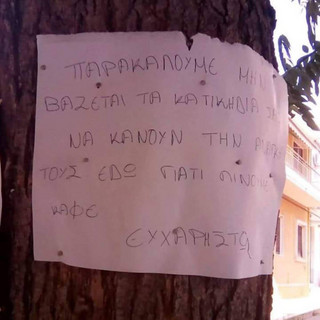 ΠΑΡΑΚΑΛΟΥΜΕ ΜΗΝ
ΒΑΖΕΤΑΙ ΤΑ ΚΑΤΙΚΗΔΙΑ ΣΑΣ
ΝΑ ΚΑΝΟΥΝ ΤΗΝ
ΤΟΥΣ ΕΔΩ ΓΙΑΤΙ ΠΙΝΟΥΜΕ
ΚΑΦΕ
ΕΥΧΑΡΗΣΤΩ